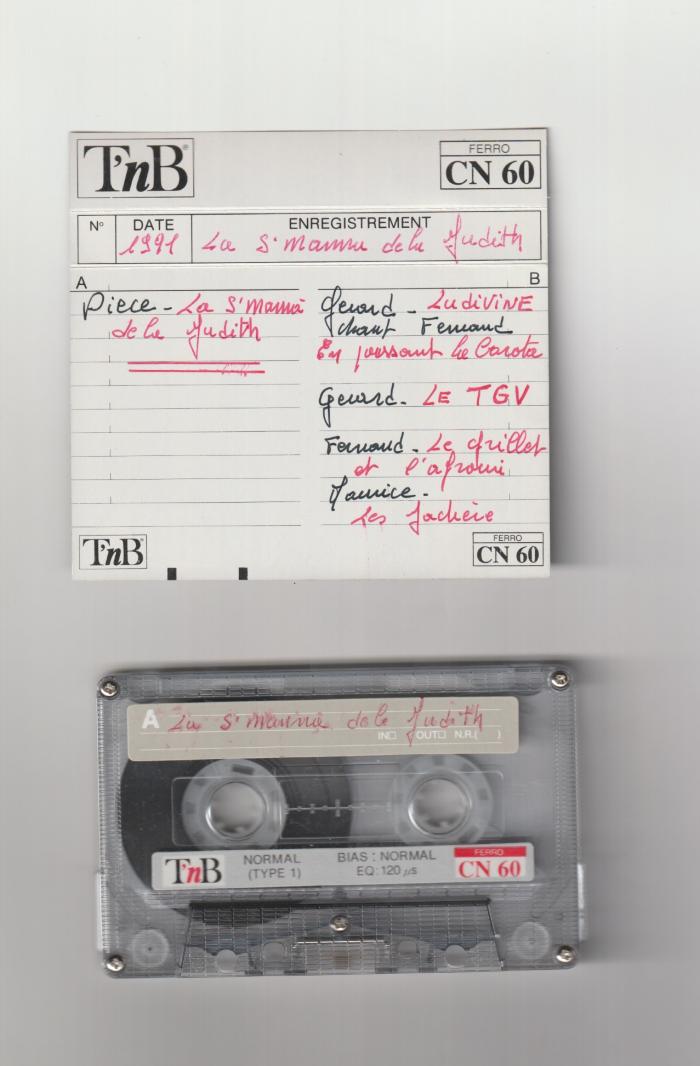 T'nB®
FERRO
CN 60
N° DATE ENREGISTREMENT
1991 La S'mamu de la Judith
A B
Piece - La S'mama
de la Judith
Gerard - LUDIVINE
chant Fernand
En poussant la Carota
Gerard - LE TGV
Fernand - Le Grillot
et l'afromi
Maurice -
Les Jachère
T'nB®
FERRO
CN 60
A La S'mamma de la Judith
IN□ OUT□ N.R.( )
T'nB NORMAL (TYPE 1) BIAS : NORMAL EQ: 120 µs
FERRO
CN 60